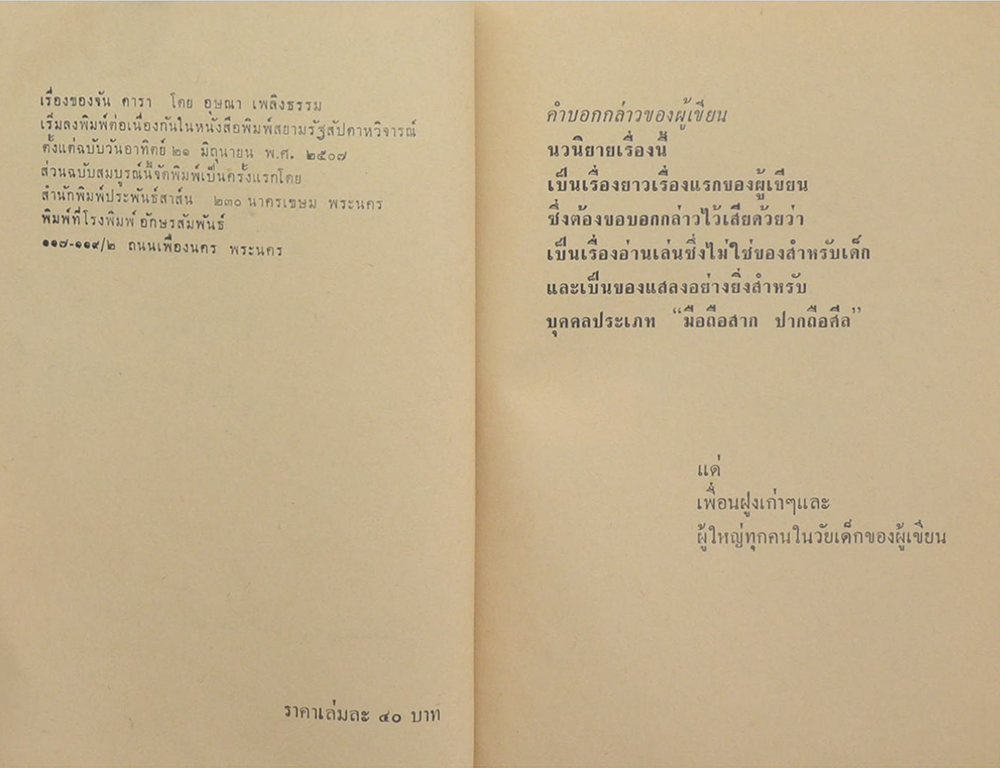 เรื่องของจัน ดารา โดย อุษณา เพลิงธรรม
เริ่มลงพิมพ์ต่อเนื่องกันในหนังสือพิมพ์สยามรัฐสัปดาหวิจารณ์
ตั้งแต่ฉบับวันอาทิตย์ ๒๑ มิถุนายน พ.ศ. ๒๕๐๗
ส่วนฉบับสมบูรณ์นี้จัดพิมพ์เป็นครั้งแรกโดย
สำนักพิมพ์ประพันธ์สาส์น ๒๓๐ นาครเขษม พระนคร
พิมพ์ที่โรงพิมพ์ อักษรสัมพันธ์
๑๑๗-๑๑๙/๒ ถนนเฟื่องนคร พระนคร
ราคาเล่มละ ๔๐ บาท
คำบอกกล่าวของผู้เขียน
นวนิยายเรื่องนี้
เป็นเรื่องยาวเรื่องแรกของผู้เขียน
ซึ่งต้องขอบอกกล่าวไว้เสียด้วยว่า
เป็นเรื่องอ่านเล่นซึ่งไม่ใช่ของสำหรับเด็ก
และเป็นของแสลงอย่างยิ่งสำหรับ
บุคคลประเภท “มือถือสาก ปากถือศีล”
แด่
เพื่อนฝูงเก่าๆและ
ผู้ใหญ่ทุกคนในวัยเด็กของผู้เขียน